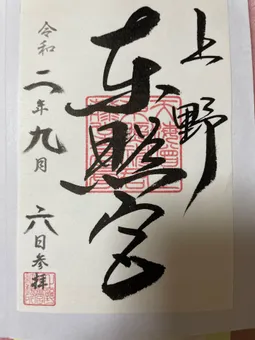 上野
東照宮
令和二年九月六日参拝